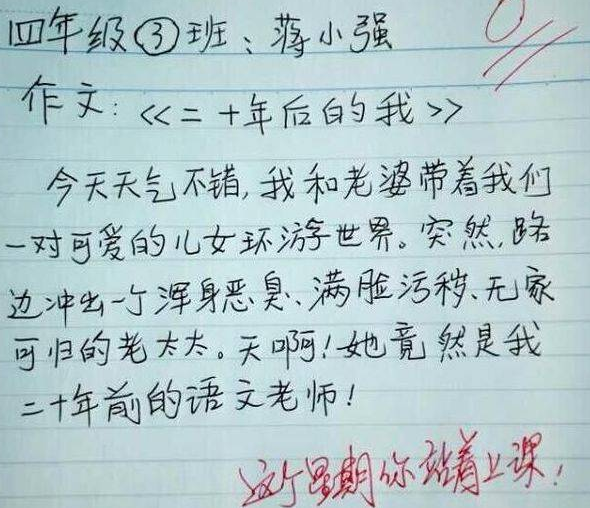 四年级③班：蒋小强
0
作文：<<二十年后的我>>
今天天气不错,我和老婆带着我们
一对可爱的儿女环游世界。突然,路
边冲出一个浑身恶臭、满脸污秽、无家
可归的老太太。天啊!她竟然是我
二十年前的语文老师!
这个星期你站着上课!